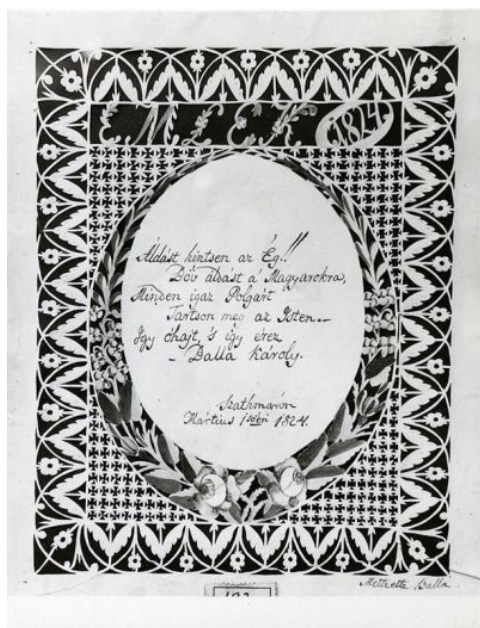 E. M. L. E. K. 1824
Áldást hintsen az Ég!!
Bőv áldást a' Magyarokra,
Minden igaz Polgárt
Tartson meg az Isten..
Így óhajt, 's így érez
– Balla Károly.
Szathmáron
Mártius 1ső 1824.
Metzette Balla.